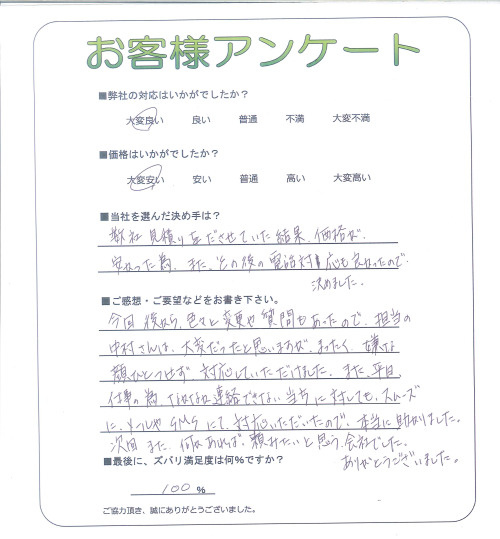 お客様アンケート
■弊社の対応はいかがでしたか？
大変良い 良い 普通 不満 大変不満
■価格はいかがでしたか？
大変安い 安い 普通 高い 大変高い
■当社を選んだ決め手は？
数社見積りを出させていた結果、価格が、
安かった為、また、その後の電話対応も良かったので、
決めました。
■ご感想・ご要望などをお書き下さい。
今回 後から、色々と変更や質問もあったので、担当の
中村さんは、大変だったと思いますが、まったく、嫌な
顔ひとつせず 対応していただけました。また、平日、
仕事の為、なかなか連絡できない当方に対しても、スムーズ
に、メールやSMSにて、対応いただいたので、本当に助かりました。
次回 また、何かあれば、頼みたいと思う会社でした。
ありがとうございました。
■最後に、ズバリ満足度は何%ですか？
100 %
ご協力頂き、誠にありがとうございました。